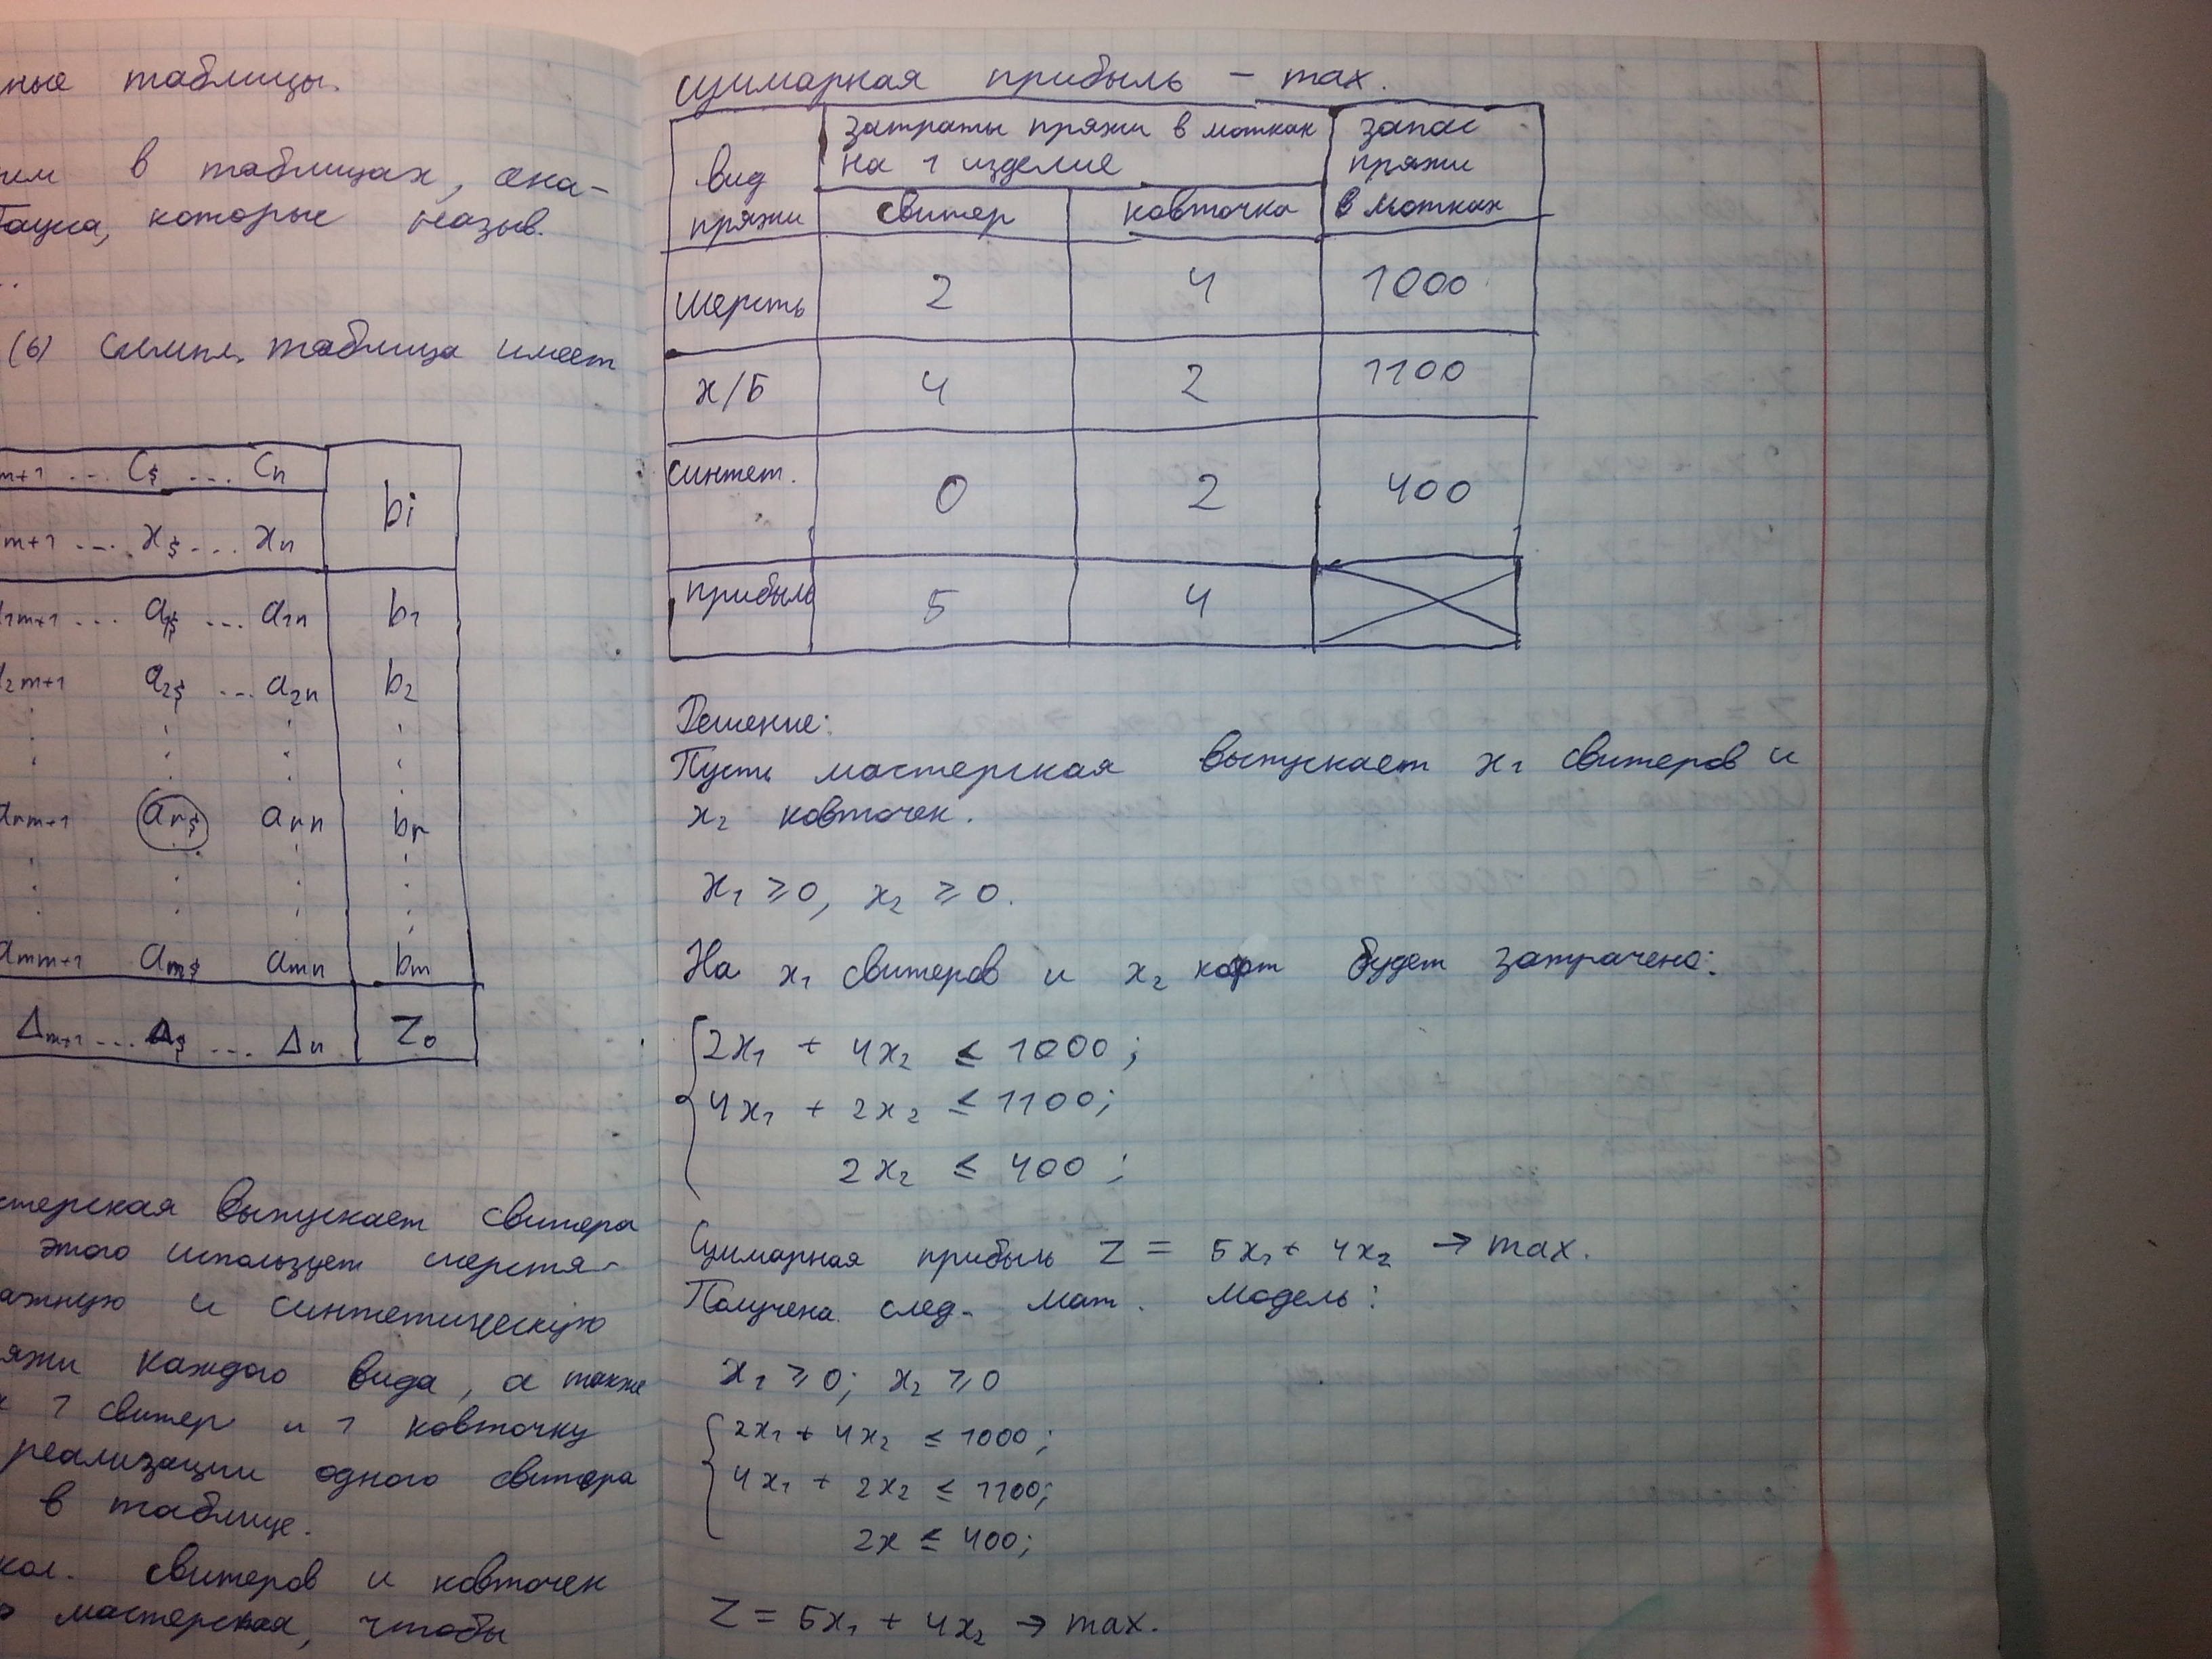 ные таблицы.
в таблицах, ана-
которые назыв.
(6) Симпл. таблица имеет
m+1 ... Cs ... Cn bi
m+1 ... xs ... xn
1m+1 ... a1s ... a1n b1
2m+1 a2s ... a2n b2
arm+1 ars arn br
amm+1 ams amn bm
Δm+1 ... Δs ... Δn Z0
стерская выпускает свитера
этого использует шерстя-
ажную и синтетическую
яжи каждого вида, а также
1 свитер и 1 ковточку
реализации одного свитера
в таблице.
кол. свитеров и ковточек
мастерская, чтобы
суммарная прибыль – max.
вид пряжи
затраты пряжи в мотках
на 1 изделие
запас
пряжи
в мотках
свитер ковточка
шерсть 2 4 1000
х/Б 4 2 1100
синтет. 0 2 400
прибыль 5 4
Решение:
Пусть мастерская выпускает x1 свитеров и
x2 ковточек.
x1 ≥ 0, x2 ≥ 0.
На x1 свитеров и x2 кофт будет затрачено:
2x1 + 4x2 ≤ 1000;
4x1 + 2x2 ≤ 1100;
2x2 ≤ 400;
Суммарная прибыль Z = 5x1 + 4x2 → max.
Получена след. мат. модель:
x1 ≥ 0; x2 ≥ 0
2x1 + 4x2 ≤ 1000;
4x1 + 2x2 ≤ 1100;
2x ≤ 400;
Z = 5x1 + 4x2 → max.